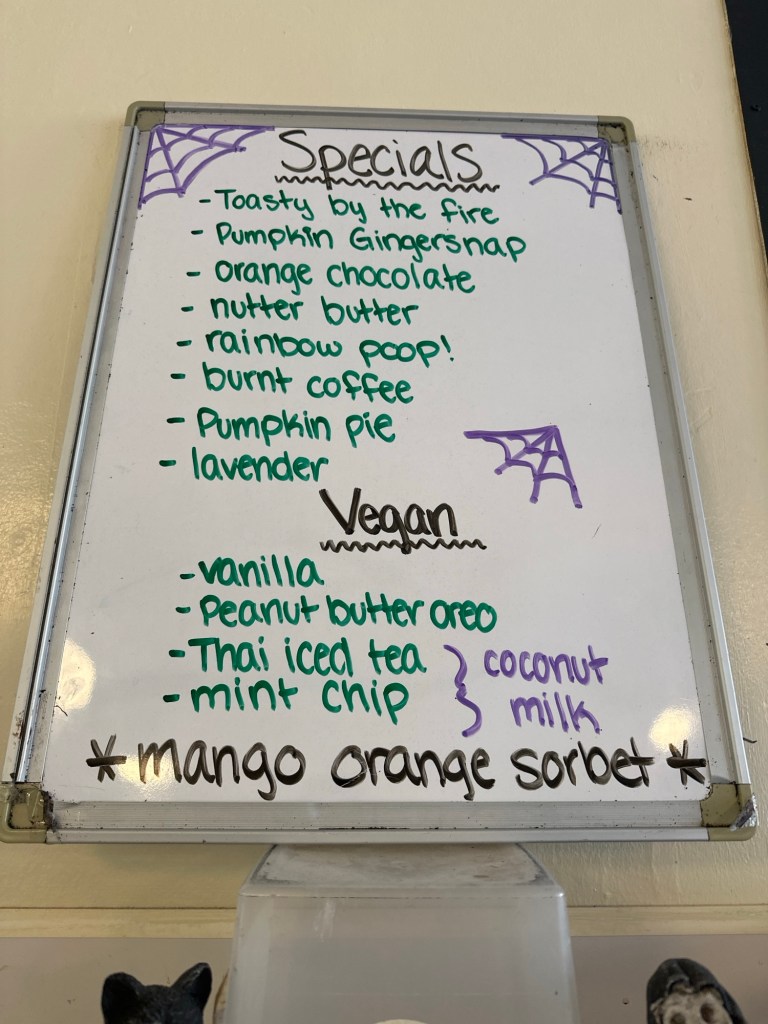 Specials
- Toasty by the fire
- Pumpkin Gingersnap
- orange chocolate
- nutter butter
- rainbow poop!
- burnt coffee
- Pumpkin pie
- lavender
Vegan
- vanilla
- Peanut butter oreo
- Thai iced tea } coconut
- mint chip } milk
* mango orange sorbet *